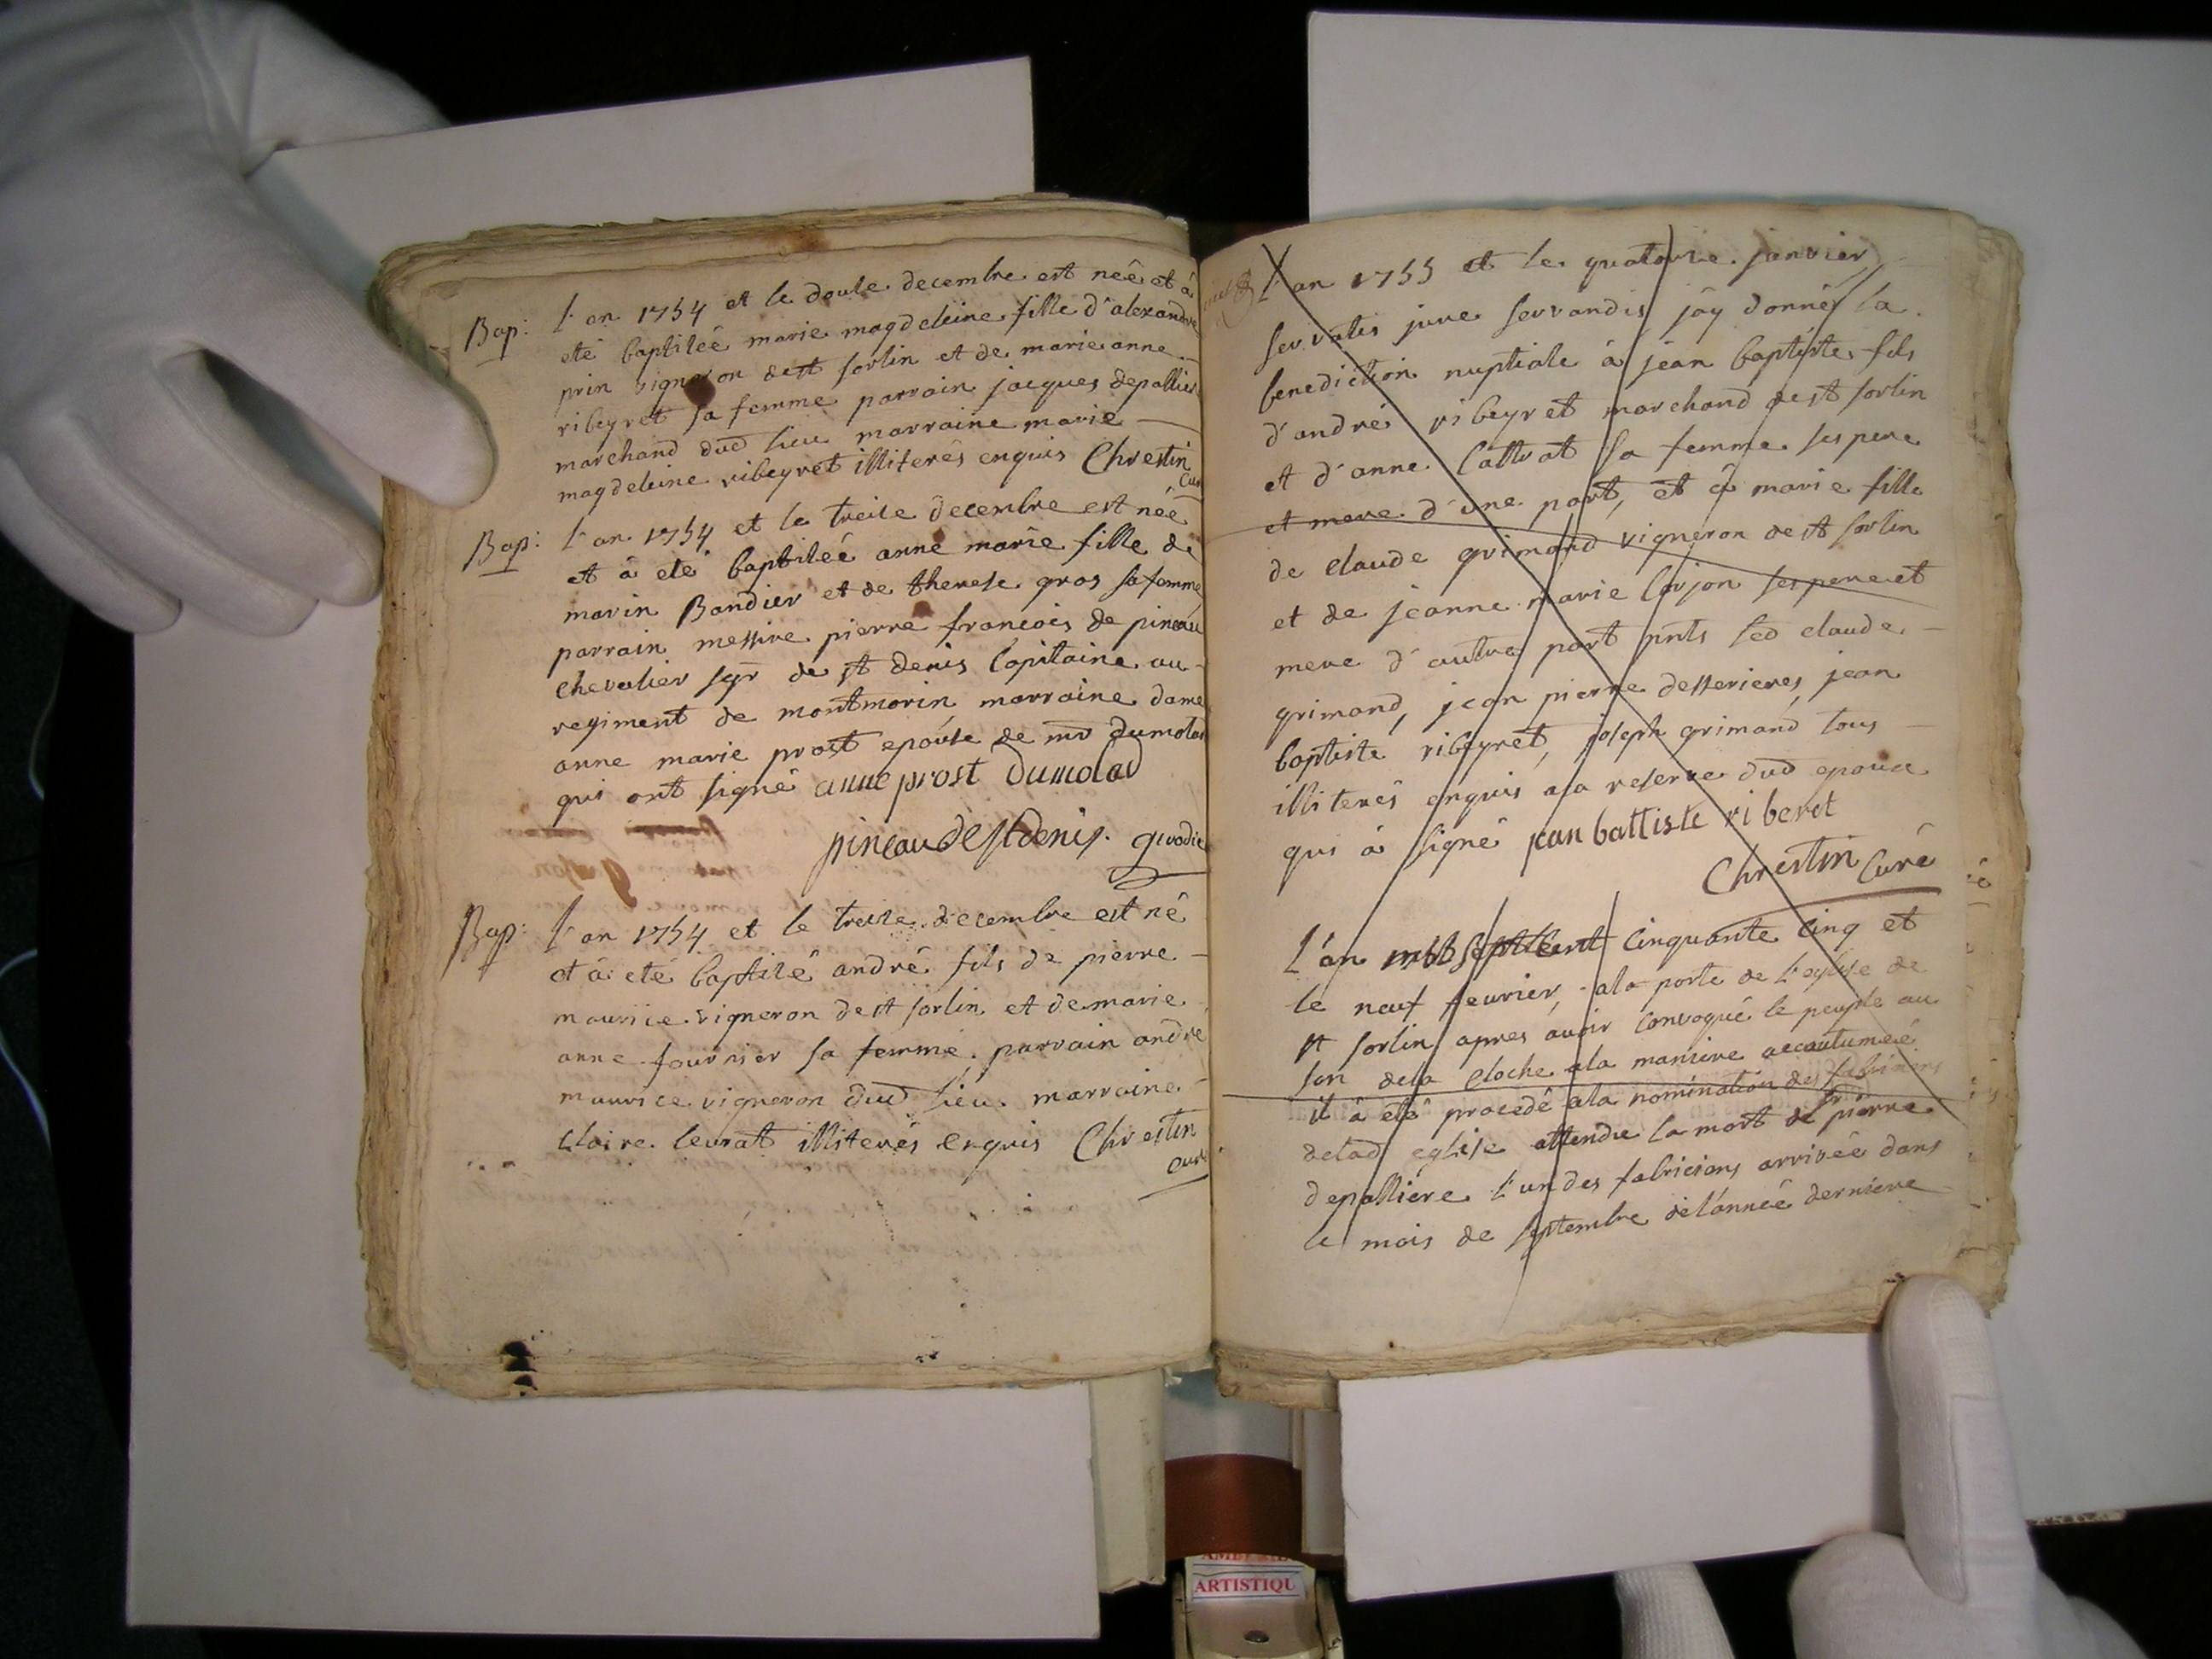 Bap: l'an 1754 et le douse decembre est neê et â
eté baptiseê marie magdeleine fille d'alexandre
prin vigneron de st sorlin et de marie anne
ribeyret sa femme parrain jacques depallier
marchand dud lieu marraine marie
magdeleine ribeyret illiterés enquis Chrestin
Curé
Bap: l'an 1754 et le treise decembre est neê
et â eté baptiseê anne marie fille de
marin Bandier et de therese gros sa femme
parrain messire pierre francois de pineau
chevalier sgr de st denis Capitaine au
regiment de montmorin marraine dame
anne marie prost epouse de mr dumolar
qui ont signé anne prost Dumolad
pineau de st denis. givodie
Bap: l'an 1754 et le treise decembre est né
et â eté baptisé andré fils de pierre
maurice vigneron de st sorlin et de marie
anne fournier sa femme, parrain andre
maurice vigneron dud lieu marraine
claire leurat illiterés enquis Chrestin
curé
l'an 1755 et le quatorse janvier
servatis jure servandis j'ay donné la
benediction nuptiale â jean baptiste fils
d'andré ribeyret marchand de st sorlin
et d'anne Cattrat sa femme ses pere
et mere d'une part, et â marie fille
de claude grimand vigneron de st sorlin
et de jeanne marie Corjon ses pere et
mere d'autre part pnts led claude
grimand, jean pierre desserieres, jean
baptiste ribeyret, joseph grimand tous
illiterés enquis a la reserve dud epoux
qui â signé jean battiste riberet
Chrestin Curé
L'an mil sept cent cinquante cinq et
le neuf feurier, a la porte de l'eglise de
st sorlin apres avoir convoqué le peuple au
son de la cloche a la maniere accoutumeé
il â eté procedé a la nomination des fabriciens
de lad eglise attendu la mort de Sr pierre
depalliere l'un des fabriciens arriveê dans
le mois de septembre de l'anneê derniere
ARTISTIQU